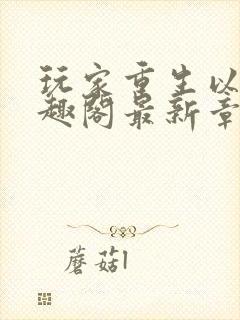 玩家重生以
趣阁最新章
蘑菇l